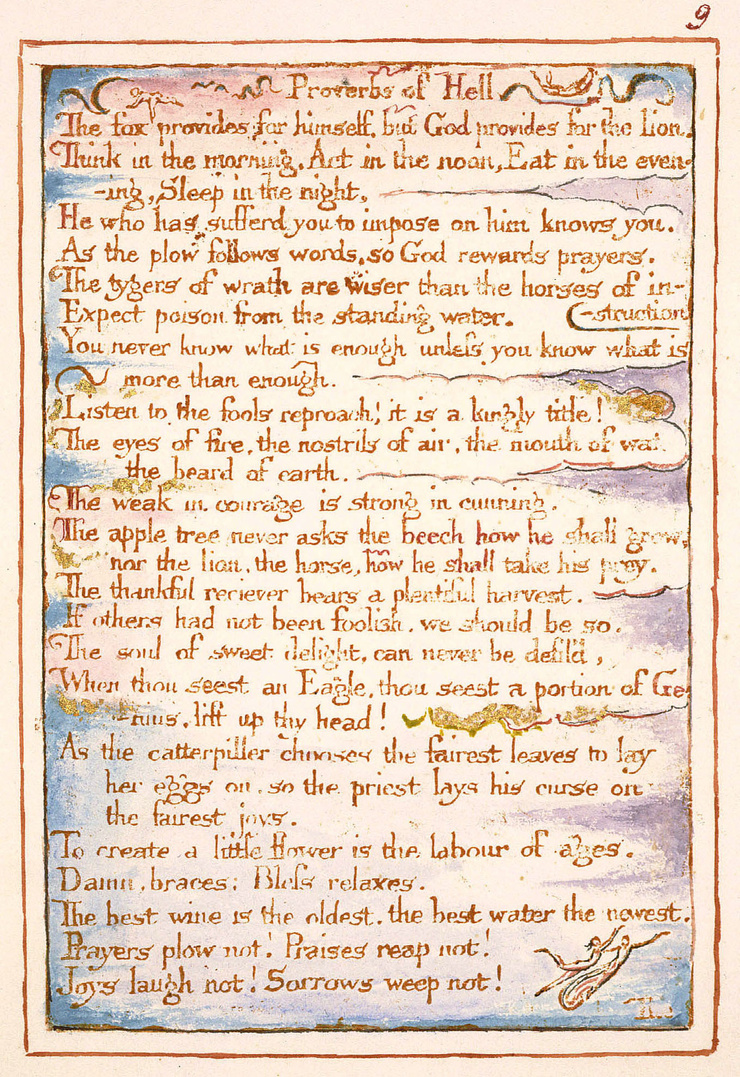 9
Proverbs of Hell
The fox provides for himself, but God provides for the lion.
Think in the morning, Act in the noon, Eat in the even-
-ing, Sleep in the night.
He who has sufferd you to impose on him knows you.
As the plow follows words, so God rewards prayers.
The tygers of wrath are wiser than the horses of in-
-struction
Expect poison from the standing water.
You never know what is enough unless you know what is
more than enough.
Listen to the fools reproach! it is a kingly title!
The eyes of fire, the nostrils of air, the mouth of
the beard of earth.
The weak in courage is strong in cunning.
The apple tree never asks the beech how he shall grow,
nor the lion, the horse, how he shall take his prey.
The thankful reciever bears a plentiful harvest.
If others had not been foolish, we should be so.
The soul of sweet delight, can never be defil'd,
When thou seest an Eagle, thou seest a portion of Ge-
-nius, lift up thy head!
As the catterpiller chooses the fairest leaves to lay
her eggs on, so the priest lays his curse on
the fairest joys.
To create a little flower is the labour of ages.
Damn, braces: Bless relaxes.
The best wine is the oldest, the best water the newest.
Prayers plow not! Praises reap not!
Joys laugh not! Sorrows weep not!